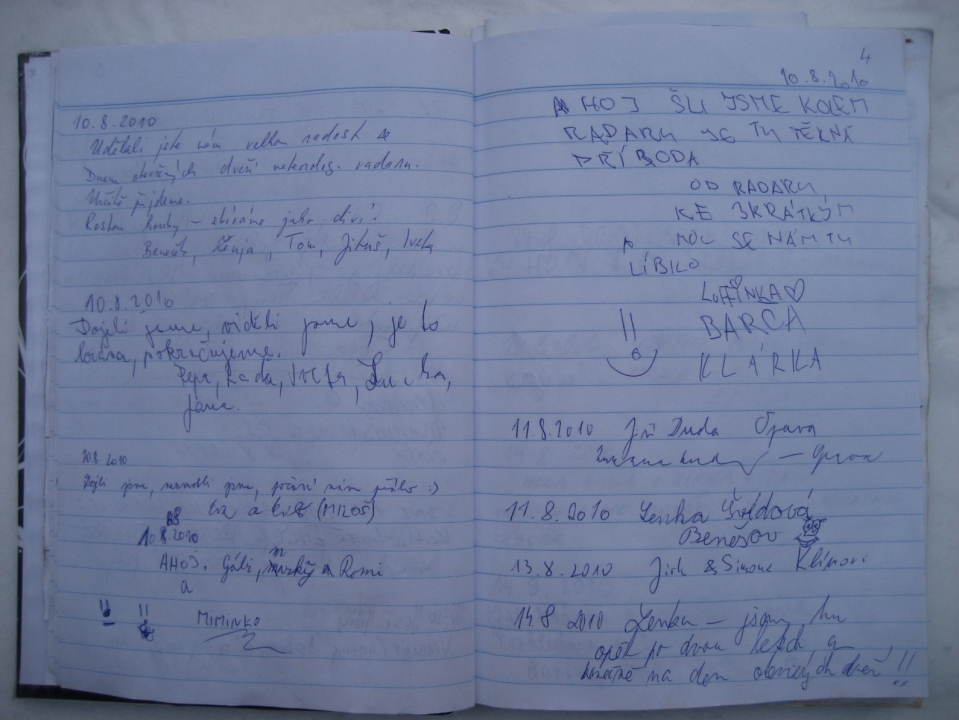 10.8.2010
Udělali jste nám velkou radost
Dnem otevřených dveří meteorolog. radaru.
Určitě přijdeme.
Rostou houby – sbíráme jako diví!
Tom, Jituš, Iveta
10.8.2010
Dojeli jsme, viděli jsme, je to
krása, pokračujeme.
Pepa, Lada, Lucka,
Jana.
10.8.2010
Došli jsme, nezmokli jsme, počasí nám přálo :)
Eva a Eva (MILOŠ)
10.8.2010
AHOJ. Gábi, a Romi
a
MIMINKO
4
10.8.2010
AHOJ ŠLI JSME KOLEM
RADARU JE TU PĚKNÁ
PŘÍRODA
OD RADARU
KE ZKRÁTKÝM
MOC SE NÁM TU
LÍBILO
BARČA
KLÁRKA
11.8.2010 Jiří Duda Opava
11.8.2010 Lenka Švídová
Benešov
13.8.2010 Jirka & Simona Klímovi
14.8.2010 Lenka – jsem tu
opět po dvou letech a
konečně na den otevřených dveří!!